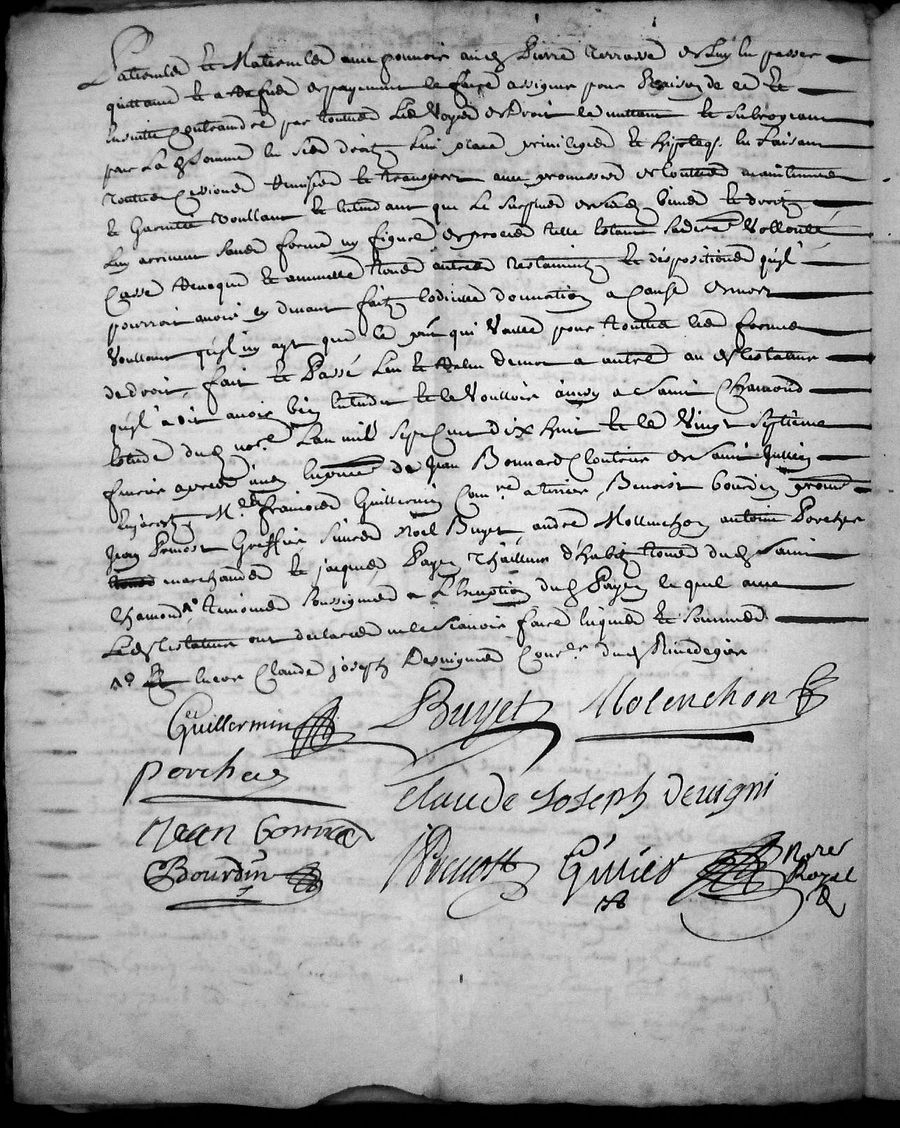 Paternelz et Maternelz avec pouvoir aud Pierre terrasse de luy en passer
quittance et a deffaut de payement le faire assigner pour Raison de ce et
ensuitte contraindre par touttes les Voyes de droit le mettant et subrogeant
par la d somme en ses droitz lieu place privilieges et hipoteq. luy faisant
touttes cessions remises et transport avec promesses de touttes maintenues
et Garantie Voullant et entendant que le surplus de ses biens et droitz
luy arrivent sans forme ny figure de proces telle estant sa derre Vollonté
Casse revoque et annulle tous autres testaments et dispositions quil
pourroit avoir cy devant faitz codicilles donnations a cause de mort
Voullant quil ny ayt que le pnt qui Vaille pour touttes les formes
de droit, fait et Passé leu et releu de mot a autre au d testateur
quil a dit avoir bien entendu et le Voulloir ainsy a Saint Chamond
estude du nore Lan mil sept cent dix huit et le Vingt septième
fevrier apres midy en presence de Jean Bonnard Cloutier de Saint Jullien
en Jarest, Mre François Guillermin Comre a terrier, Benoist bourdin
Jean Prevost Greffier Sieurs Noel Buyet, andré Mollinchon antoine Porcher
marchands et jacques Payen tailleur d'habitz tous dud Saint
Chamond tesmoins soussignes a L'Exeption dud Payen lequel avec
Led testateur ont declares ne scavoir faire enquis et sommes
et encor Claude joseph Desvignes Conr du Rivedegier
Guillermin Buyet Molenchon
Porcher
Claude Joseph devigni
Jean bonnard
Bourdin Prevost Nore Royal